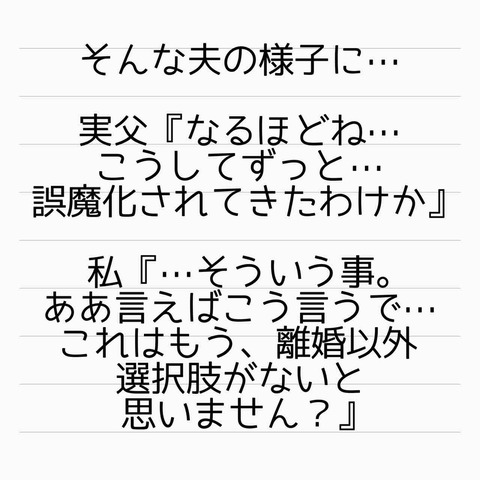 そんな夫の様子に…
実父『なるほどね…
こうしてずっと…
誤魔化されてきたわけか』
私『…そういう事。
ああ言えばこう言うで…
これはもう、離婚以外
選択肢がないと
思いません？』